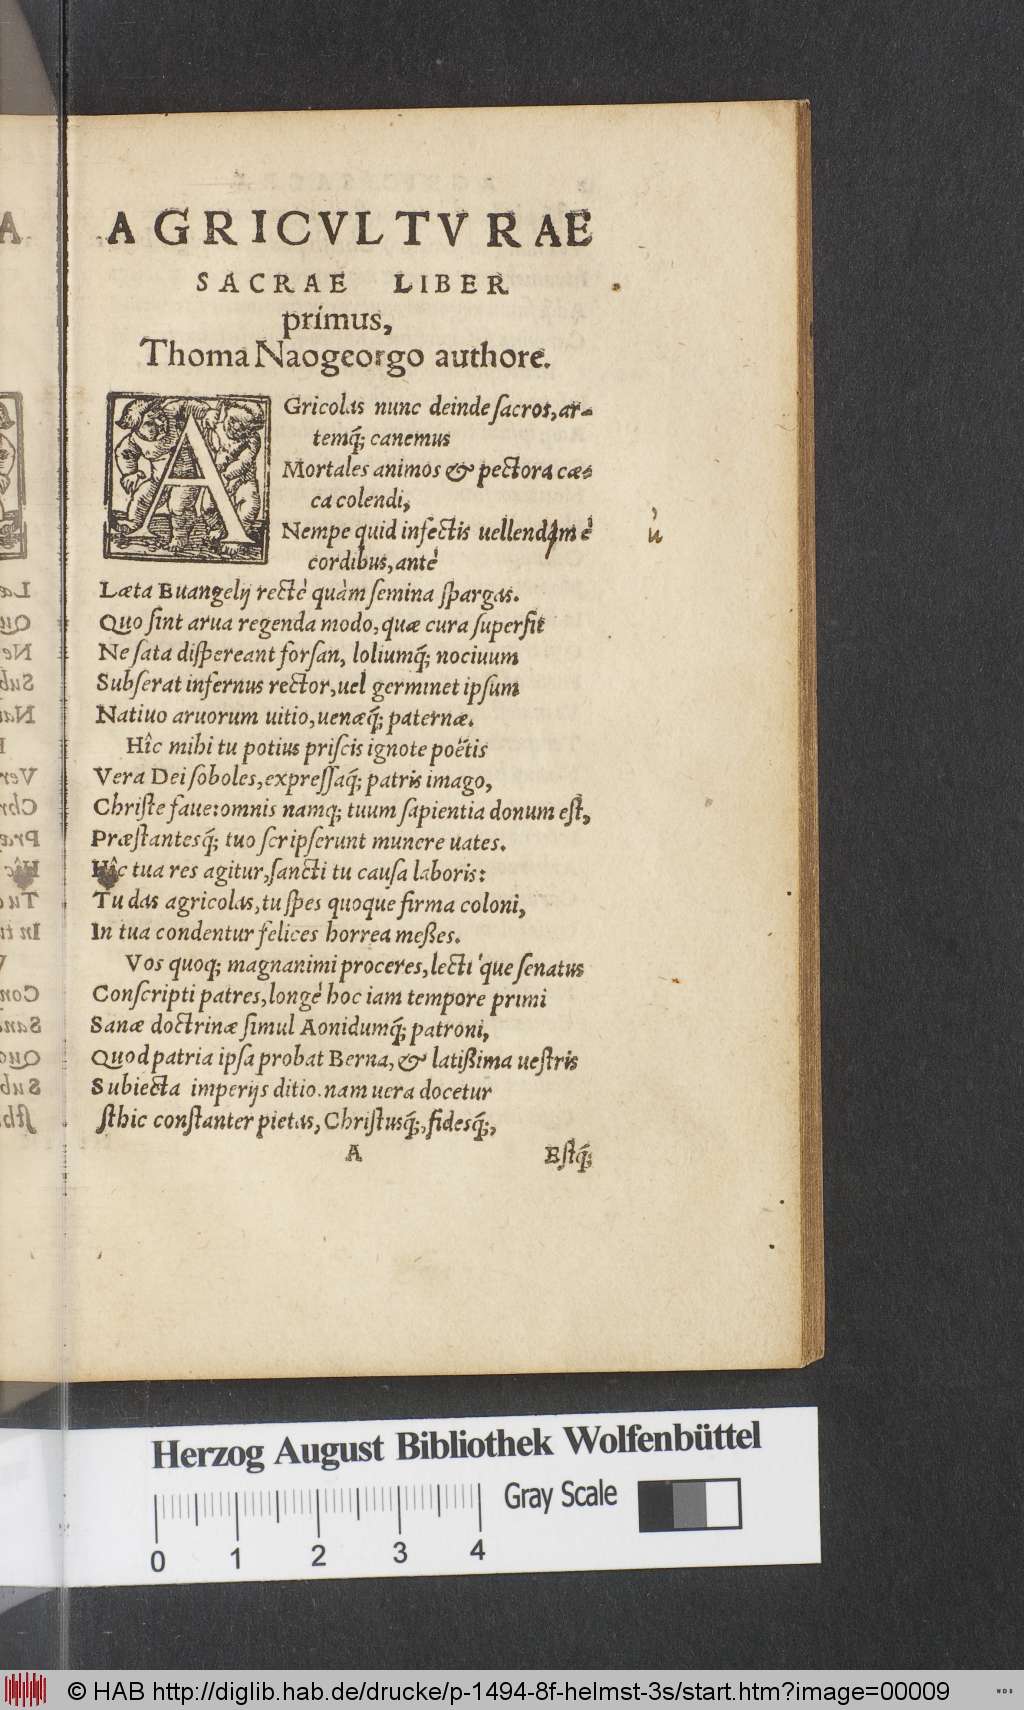 AGRICVLTVRAE
SACRAE LIBER
primus,
Thoma Naogeorgo authore.
AGricolas nunc deinde sacros, ar-
temq́; canemus
Mortales animos & pectora cæ-
ca colendi,
Nempe quid infectis uellendum è
ù
cordibus, antè
Læta Euangelij rectè quàm semina spargas.
Quo sint arua regenda modo, quæ cura supersit
Ne sata dispereant forsan, loliumq́; nociuum
Subserat infernus rector, uel germinet ipsum
Natiuo aruorum uitio, uenæq́; paternæ.
Hîc mihi tu potius priscis ignote poëtis
Vera Dei soboles, expressaq́; patris imago,
Christe faue: omnis namq; tuum sapientia donum est,
Præstantesq́; tuo scripserunt munere uates.
Hîc tua res agitur, sancti tu causa laboris:
Tu das agricolas, tu spes quoque firma coloni,
In tua condentur felices horrea meßes.
Vos quoq; magnanimi proceres, lecti'que senatus
Conscripti patres, longè hoc iam tempore primi
Sanæ doctrinæ simul Aonidumq́; patroni,
Quod patria ipsa probat Berna, & latißima uestris
Subiecta imperijs ditio. nam uera docetur
sthic constanter pietas, Christusq́;, fidesq́;,
A Estq́;
Herzog August Bibliothek Wolfenbüttel
Gray Scale
0 1 2 3 4
© HAB http://diglib.hab.de/drucke/p-1494-8f-helmst-3s/start.htm?image=00009